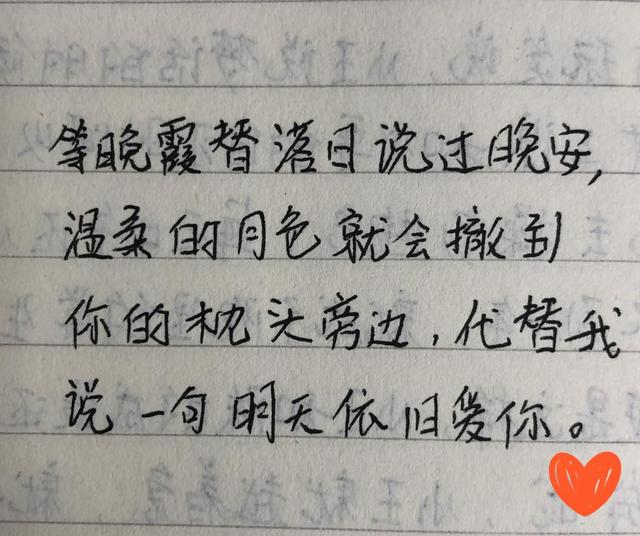 等晚霞替落日说过晚安,
温柔的月色就会撒到
你的枕头旁边,代替我
说一句明天依旧爱你。